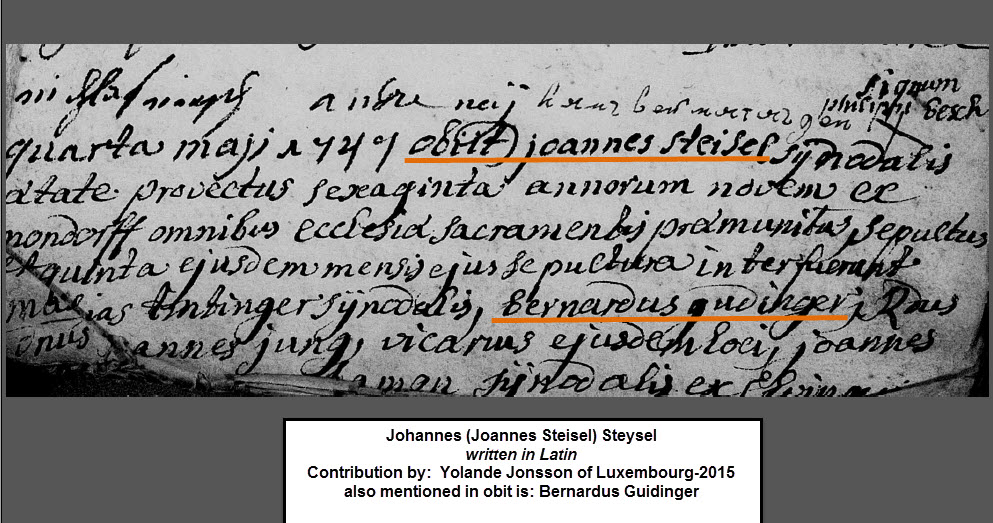 signum
philippi besch
quarta maji 1747 obiit joannes steisel sÿnodalis
ætate provectus sexaginta annorum novem ex
mondorff omnibus ecclesiæ sacramentis præmunitus sepultus
et quinta ejusdem mensis ejus sepulturæ interfuerunt
mathias tintinger sÿnodalis, bernardus gudinger, Rdus
Dnus joannes jung, vicarius ejusdem loci, joannes
sÿnodalis ex
Johannes (Joannes Steisel) Steysel
written in Latin
Contribution by: Yolande Jonsson of Luxembourg-2015
also mentioned in obit is: Bernardus Guidinger